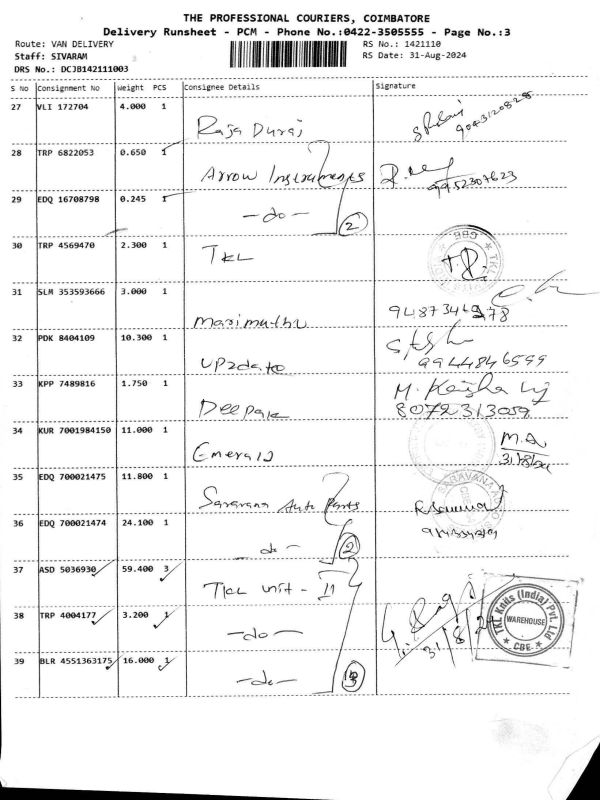 THE PROFESSIONAL COURIERS, COIMBATORE
Delivery Runsheet - PCM - Phone No.:0422-3505555 - Page No.:3
Route: VAN DELIVERY RS No.: 1421110
Staff: SIVARAM RS Date: 31-Aug-2024
DRS No.: DCJB142111003
S No Consignment No Weight PCS Consignee Details Signature
27 VLI 172704 4.000 1
Raja Durai 9043120828
28 TRP 6822053 0.650 1
Arrow Instruments 9952307623
29 EDQ 16708798 0.245 1
-do- 2
30 TRP 4569470 2.300 1
TKL
31 SLM 353593666 3.000 1
Marimuthu
32 PDK 8404109 10.300 1
9944846599
33 KPP 7489816 1.750 1
Deepak 8072313059
34 KUR 7001984150 11.000 1
Emerald 31/8/24
35 EDQ 700021475 11.800 1
Saravana Auto Parts
36 EDQ 700021474 24.100 1
-do- 2
37 ASD 5036930 59.400 3
TKL unit - II
38 TRP 4004177 3.200 1
-do- 31/8/24
TKL Knits (India) Pvt. Ltd
WAREHOUSE
CBE.
39 BLR 4551363175 16.000 1
-do- 3